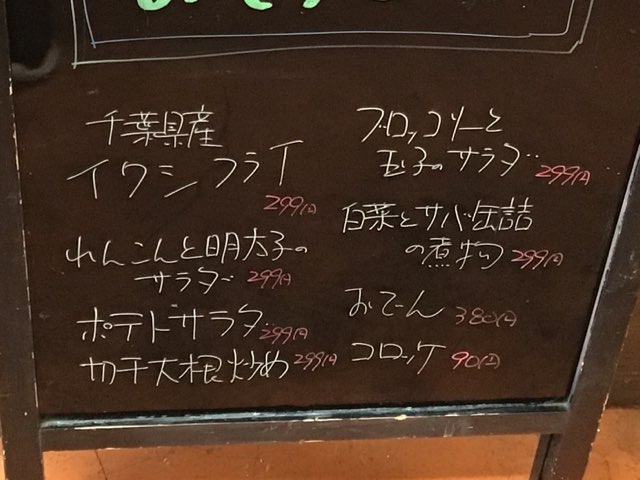 千葉県産
イワシフライ
299円
れんこんと明太子の
サラダ 299円
ポテトサラダ 299円
切干大根炒め 299円
ブロッコリーと
玉子のサラダ 299円
白菜とサバ缶詰
の煮物 299円
おでーん 380円
コロッケ 90円